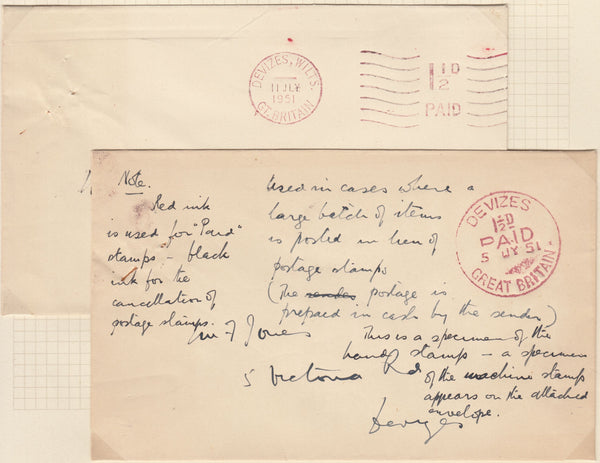 DEVIZES, WILTS.
11 JLY
1951
GT. BRITAIN
1 1/2 D
PAID
Note.
Red ink
is used for "Paid"
stamps - black
ink for the
cancellation of
postage stamps.
Used in cases where a
large batch of items
is posted in lieu of
postage stamps
(The sender postage is
prepaid in cash by the sender)
DEVIZES
1 1/2 D
PAID
5 JY 51
GREAT BRITAIN
Jones
This is a specimen of the
hand stamps - a specimen
5 Victoria Rd
of the machine stamps
appears on the attached
envelope.
Devizes